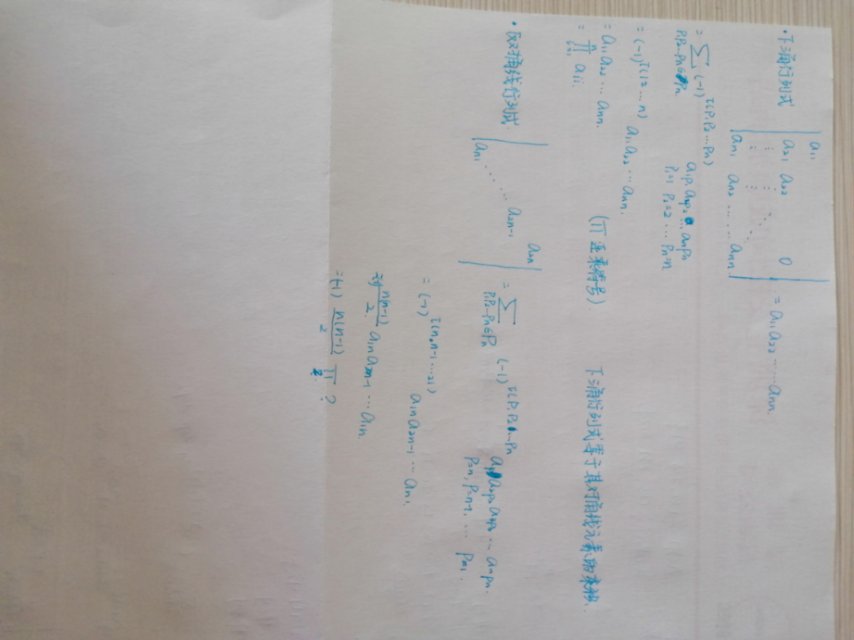 ·下三角行列式
| a11
a21 a22 0
⋮ ⋮ ⋱
an1 an2 …… ann | = a11a22……ann
= ∑ (-1)^τ(P1P2…Pn) a1P1 a2P2 … anPn
P1P2…Pn∈Pn P1=1 P2=2 … Pn=n
= (-1)^τ(12…n) a11a22…ann.
= a11a22…ann.
= ∏ aii. (∏ 连乘符号). 下三角行列式等于其对角线元素的乘积.
·反对角线行列式
| a1n
a2n-1
⋰
an1 | = ∑ (-1)^τ(P1P2…Pn
P1P2…Pn∈Pn P1=n, P2=n-1, … Pn=1.
= (-1)^τ(n,n-1…21) a1na2n-1…an1.
n(n-1)/2 a1na2n-1…a1n
=(-1) n(n-1)/2 ∏ ?